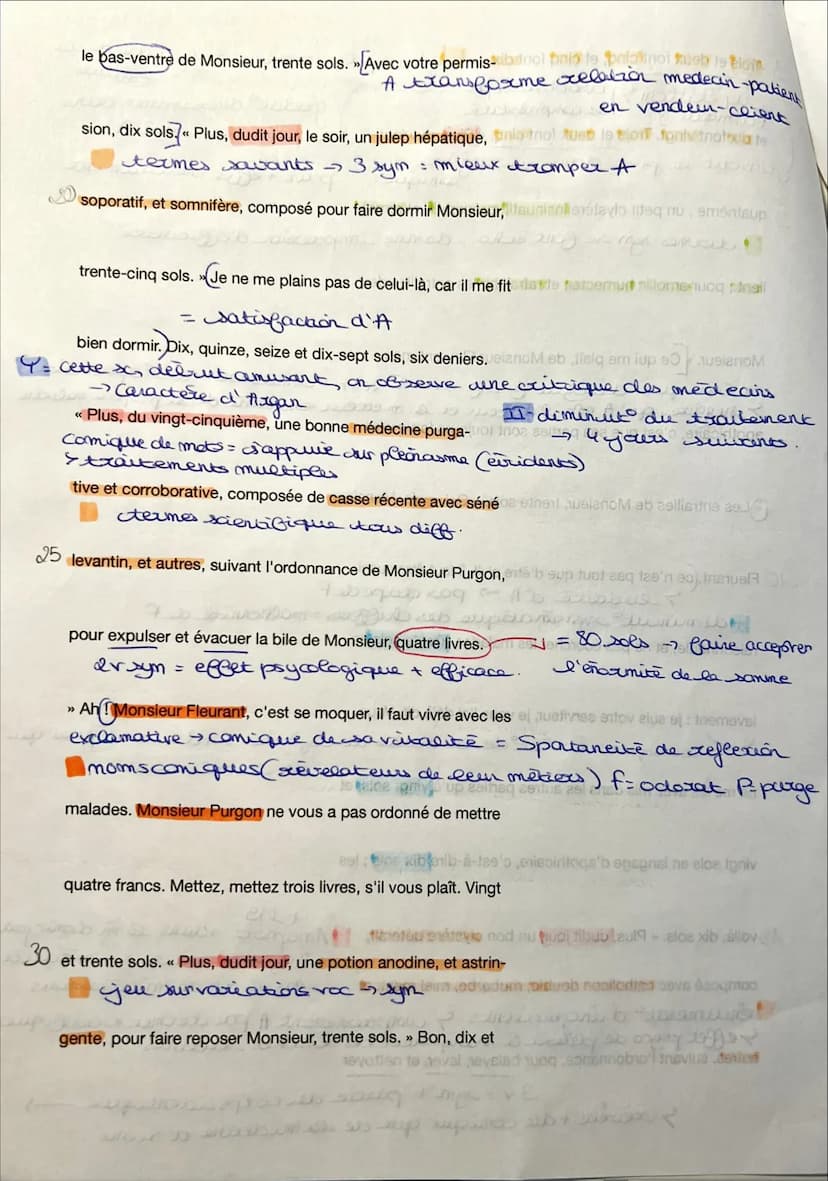 le bas-ventre de Monsieur, trente sols. » [Avec votre permis-
A transforme relation medecin-patient
en vendeur-client
sion, dix sols] « Plus, dudit jour, le soir, un julep hépatique,
termes savants → 3 sym = mieux tromper A
20 soporatif, et somnifère, composé pour faire dormir Monsieur,
trente-cinq sols. » (Je ne me plains pas de celui-là, car il me fit
= satisfaction d'A
bien dormir.) Dix, quinze, seize et dix-sept sols, six deniers.
= cette sc, début amusant, on observe une critique des médecins
→ Caractère d'Argan
« Plus, du vingt-cinquième, une bonne médecine purga-
II- diminut° du traitement
→ 4 jours suivants.
Comique de mots = s'appuie sur pléonasme (évidents)
↳ traitements multiples
tive et corroborative, composée de casse récente avec séné
termes scientifique tous diff.
25 levantin, et autres, suivant l'ordonnance de Monsieur Purgon,
pour expulser et évacuer la bile de Monsieur, quatre livres. → = 80 sols → faire accepter
l'énormité de la somme
2v sym = effet psycologique + efficace.
» Ah ! Monsieur Fleurant, c'est se moquer, il faut vivre avec les
exclamative → comique de sa vitalité = Spontaneité de reflexion
noms comiques (révélateurs de leur métiers) F= odorat P= purge
malades. Monsieur Purgon ne vous a pas ordonné de mettre
quatre francs. Mettez, mettez trois livres, s'il vous plaît. Vingt
30 et trente sols. « Plus, dudit jour, une potion anodine, et astrin-
jeu sur variations voc → sym
gente, pour faire reposer Monsieur, trente sols. » Bon, dix et